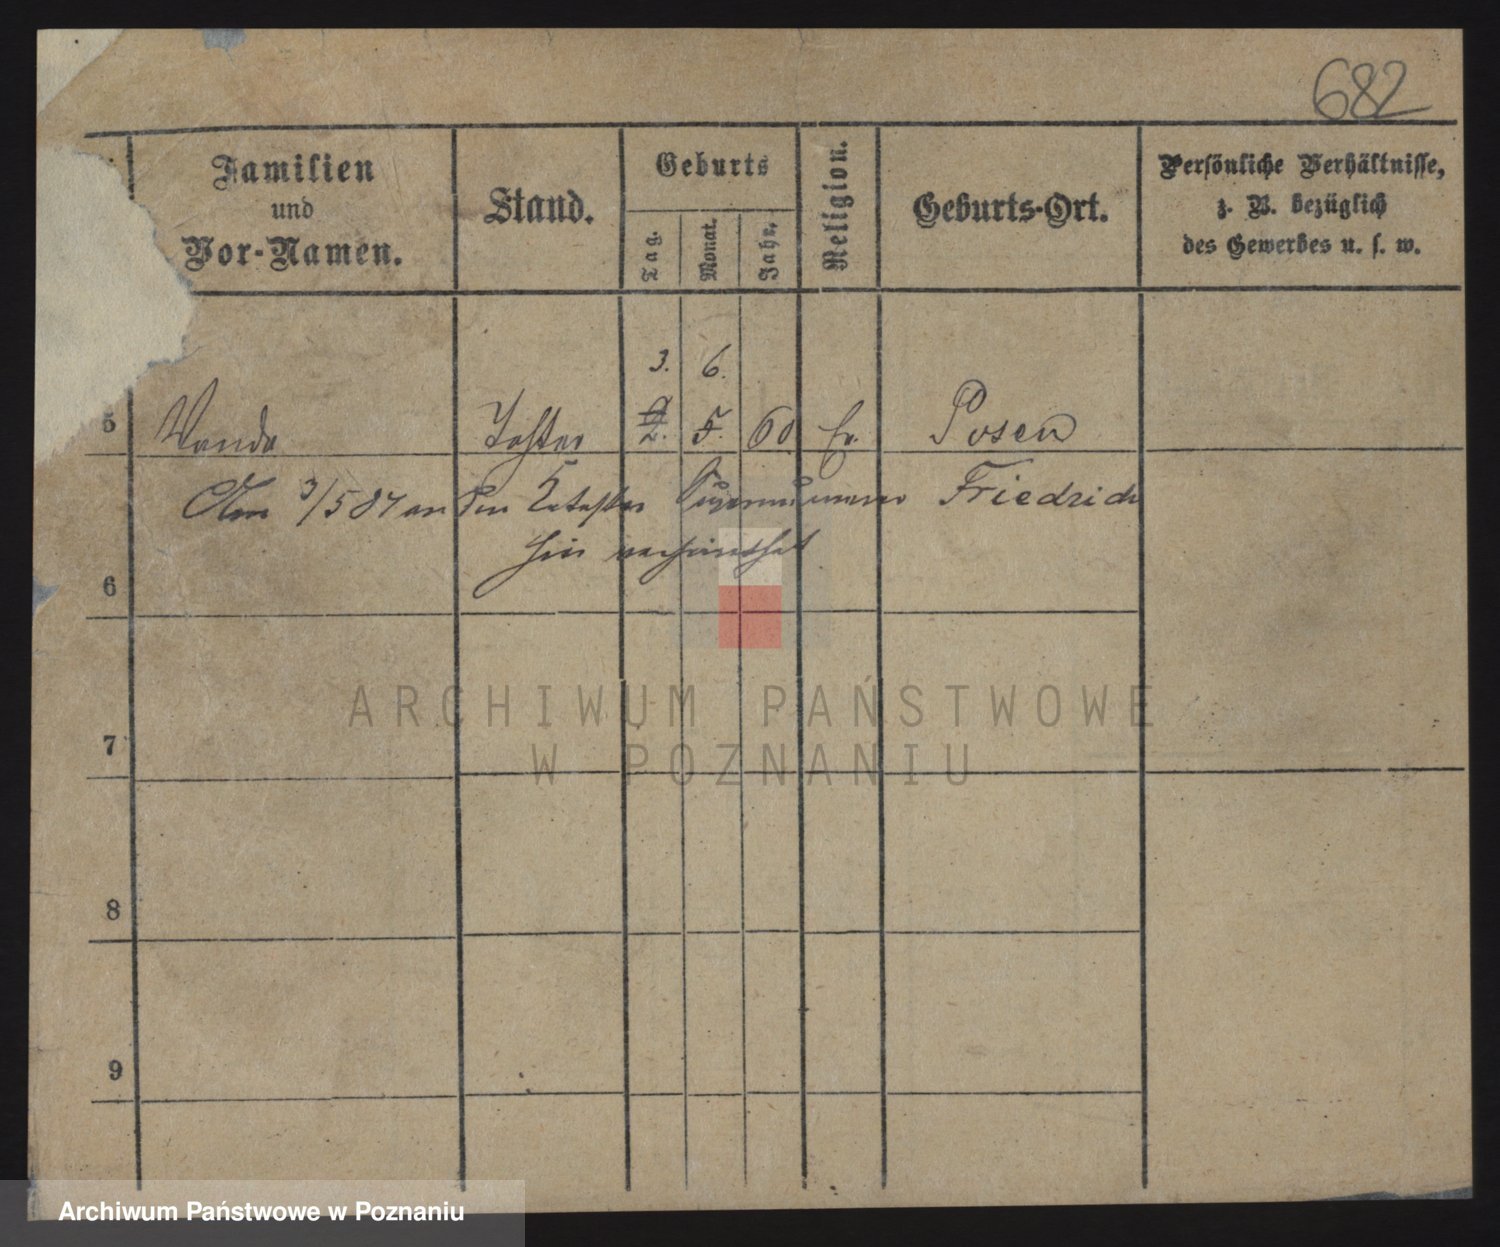 682
Familien
und
Vor-Namen.
Stand.
Geburts
Tag.
Monat.
Jahr.
Religion.
Geburts-Ort.
Persönliche Verhältnisse,
z. B. bezüglich
des Gewerbes u. s. w.
3. 6.
5 Wanda Tochter 2. 5. 60 Ev. Posen
Am 3/5 87 an den Kataster Supernumerar Friedrich
verheirathet
6
7
8
9
ARCHIWUM PAŃSTWOWE
W POZNANIU
Archiwum Państwowe w Poznaniu